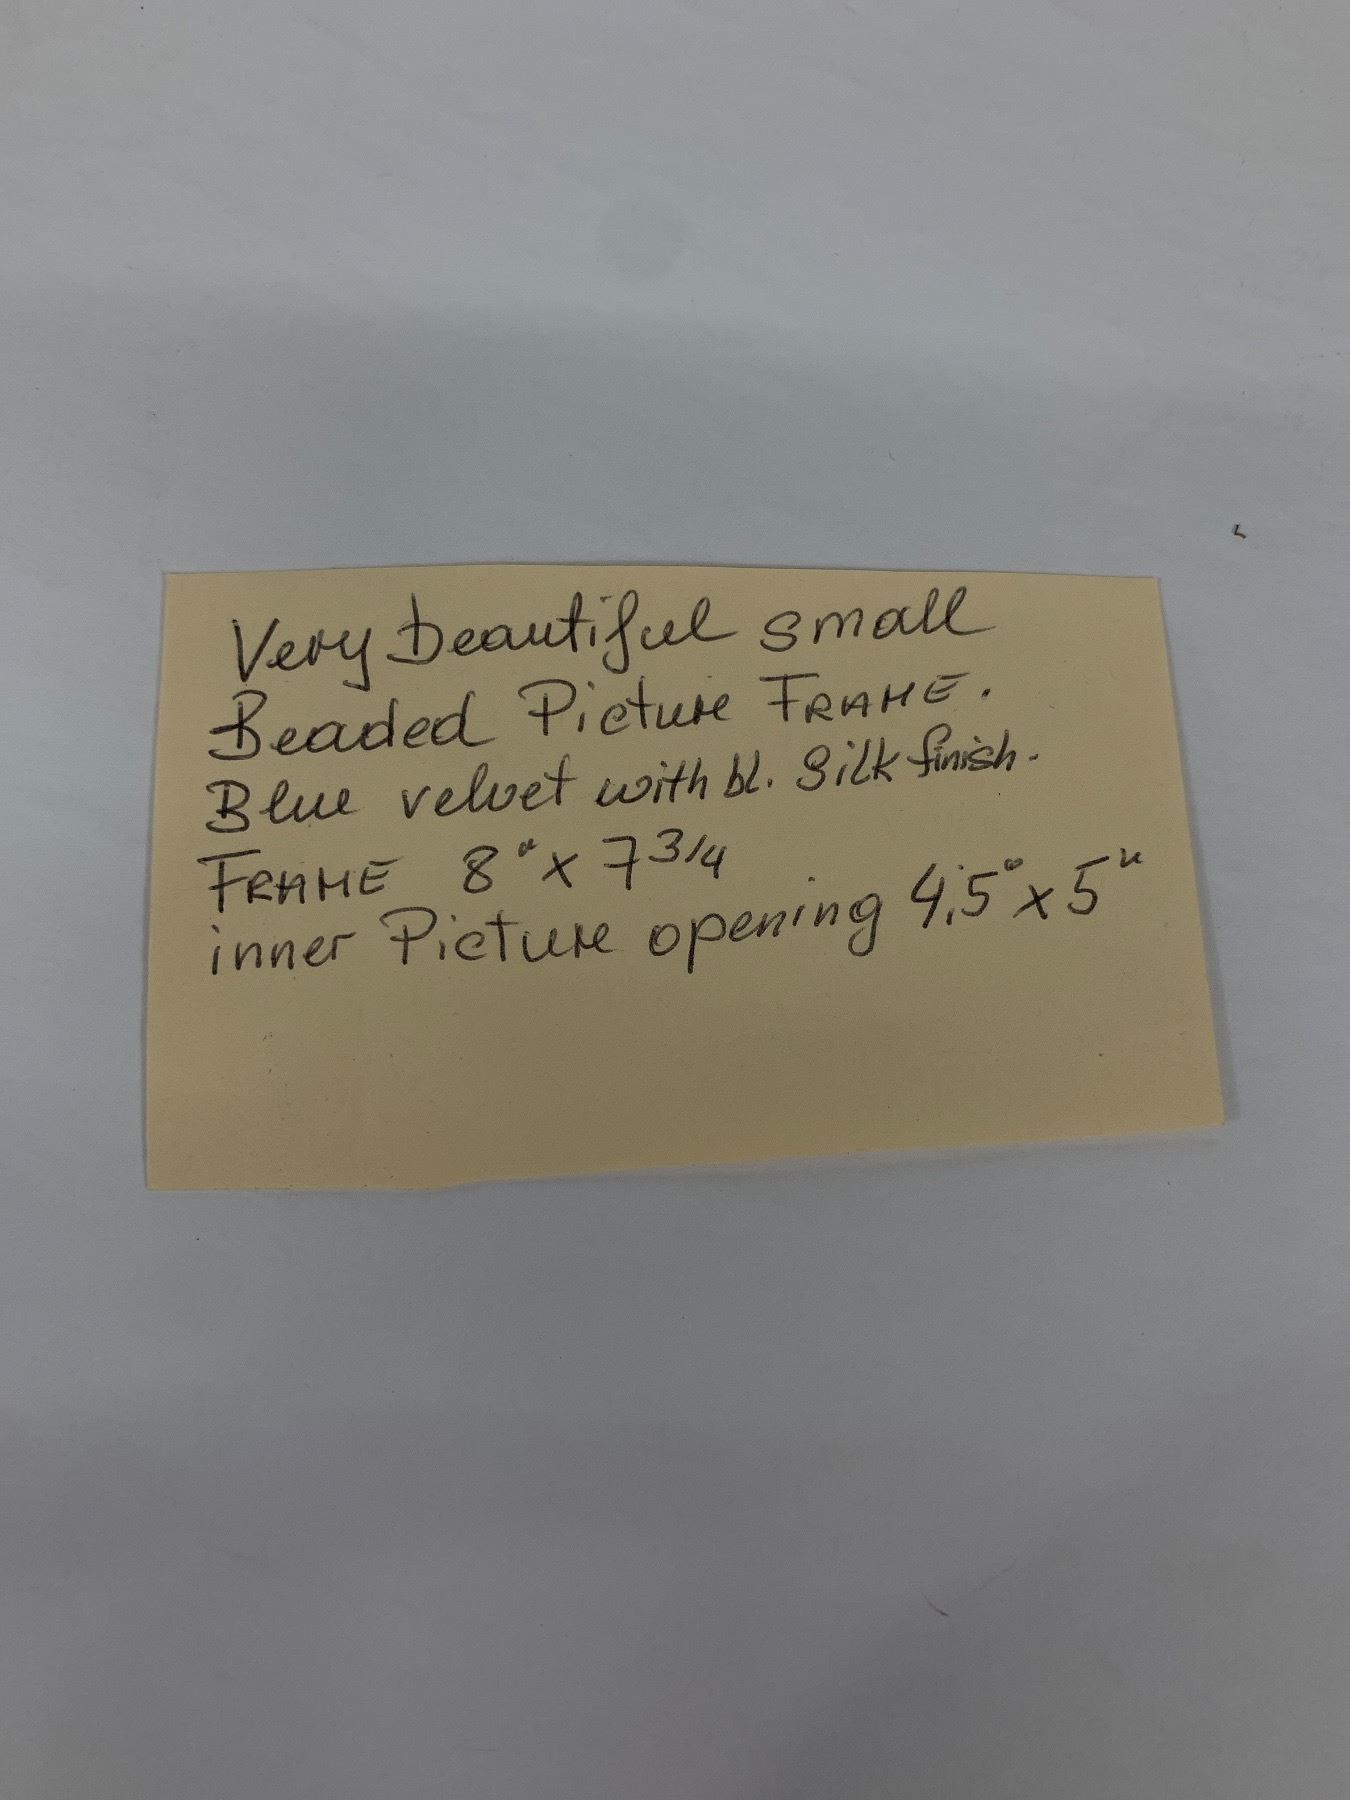 Very beautiful small
Beaded Picture FRAME.
Blue velvet with bl. Silk finish.
FRAME 8" x 7 3/4
inner Picture opening 4.5" x 5"